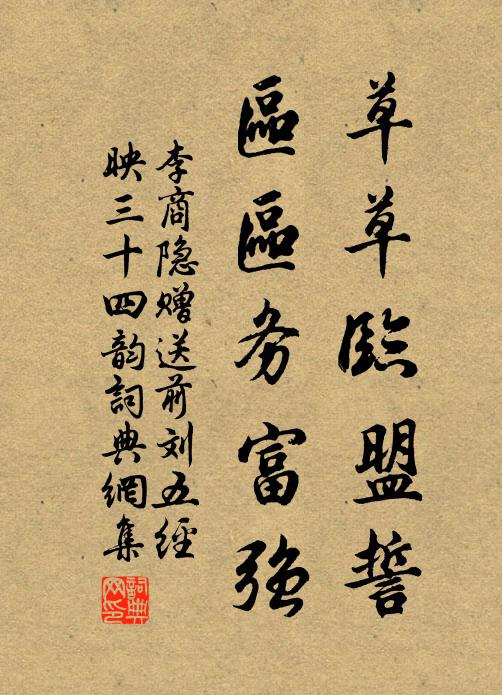 草草臨盟誓
區區务富強
李商隐赠送前刘五經
映三十四韵詞典網集
詞典网印